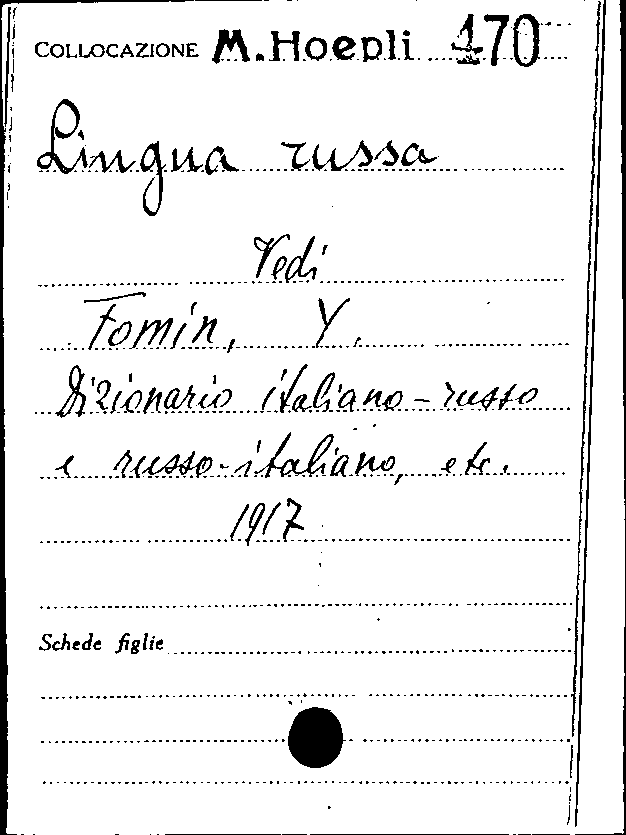 COLLOCAZIONE M. Hoepli 170
Lingua russa
Vedi
Fomin, Y.
Dizionario italiano-russo
e russo-italiano, etc.
1917
Schede figlie